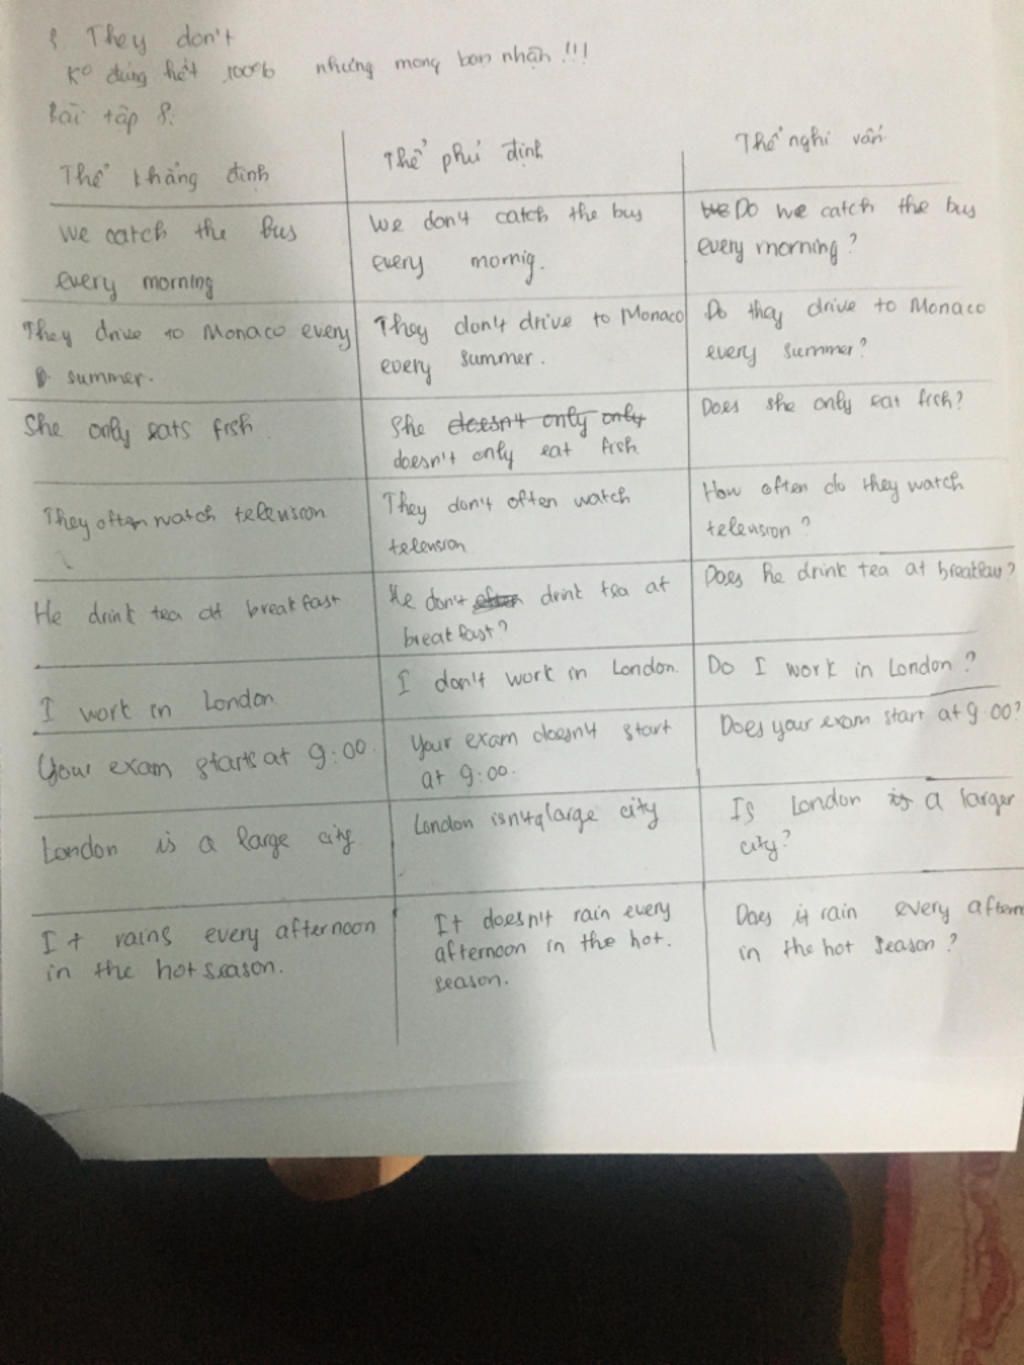 8. They don't
Ko đúng hết 100% nhưng mong bạn nhận !!!
Bài tập 8:
Thể khẳng định
Thể phủ định
Thể nghi vấn
We catch the bus
every morning
We don't catch the bus
every mornig.
Do we catch the bus
every morning?
They drive to Monaco every
summer.
They don't drive to Monaco
every summer.
Do they drive to Monaco
every summer?
She only eats fish
She doesn't only only
doesn't only eat fish
Does she only eat fish?
They often watch television
They don't often watch
television
How often do they watch
television?
He drink tea at breakfast
He don't often drink tea at
breakfast?
Does he drink tea at breakfast?
I work in London
I don't work in London.
Do I work in London?
Your exam starts at 9:00.
Your exam doesn't start
at 9:00.
Does your exam start at 9:00?
London is a large city
London isn't a large city
Is London is a larger
city?
It rains every afternoon
in the hot season.
It doesn't rain every
afternoon in the hot.
season.
Does it rain every aftern
in the hot season?